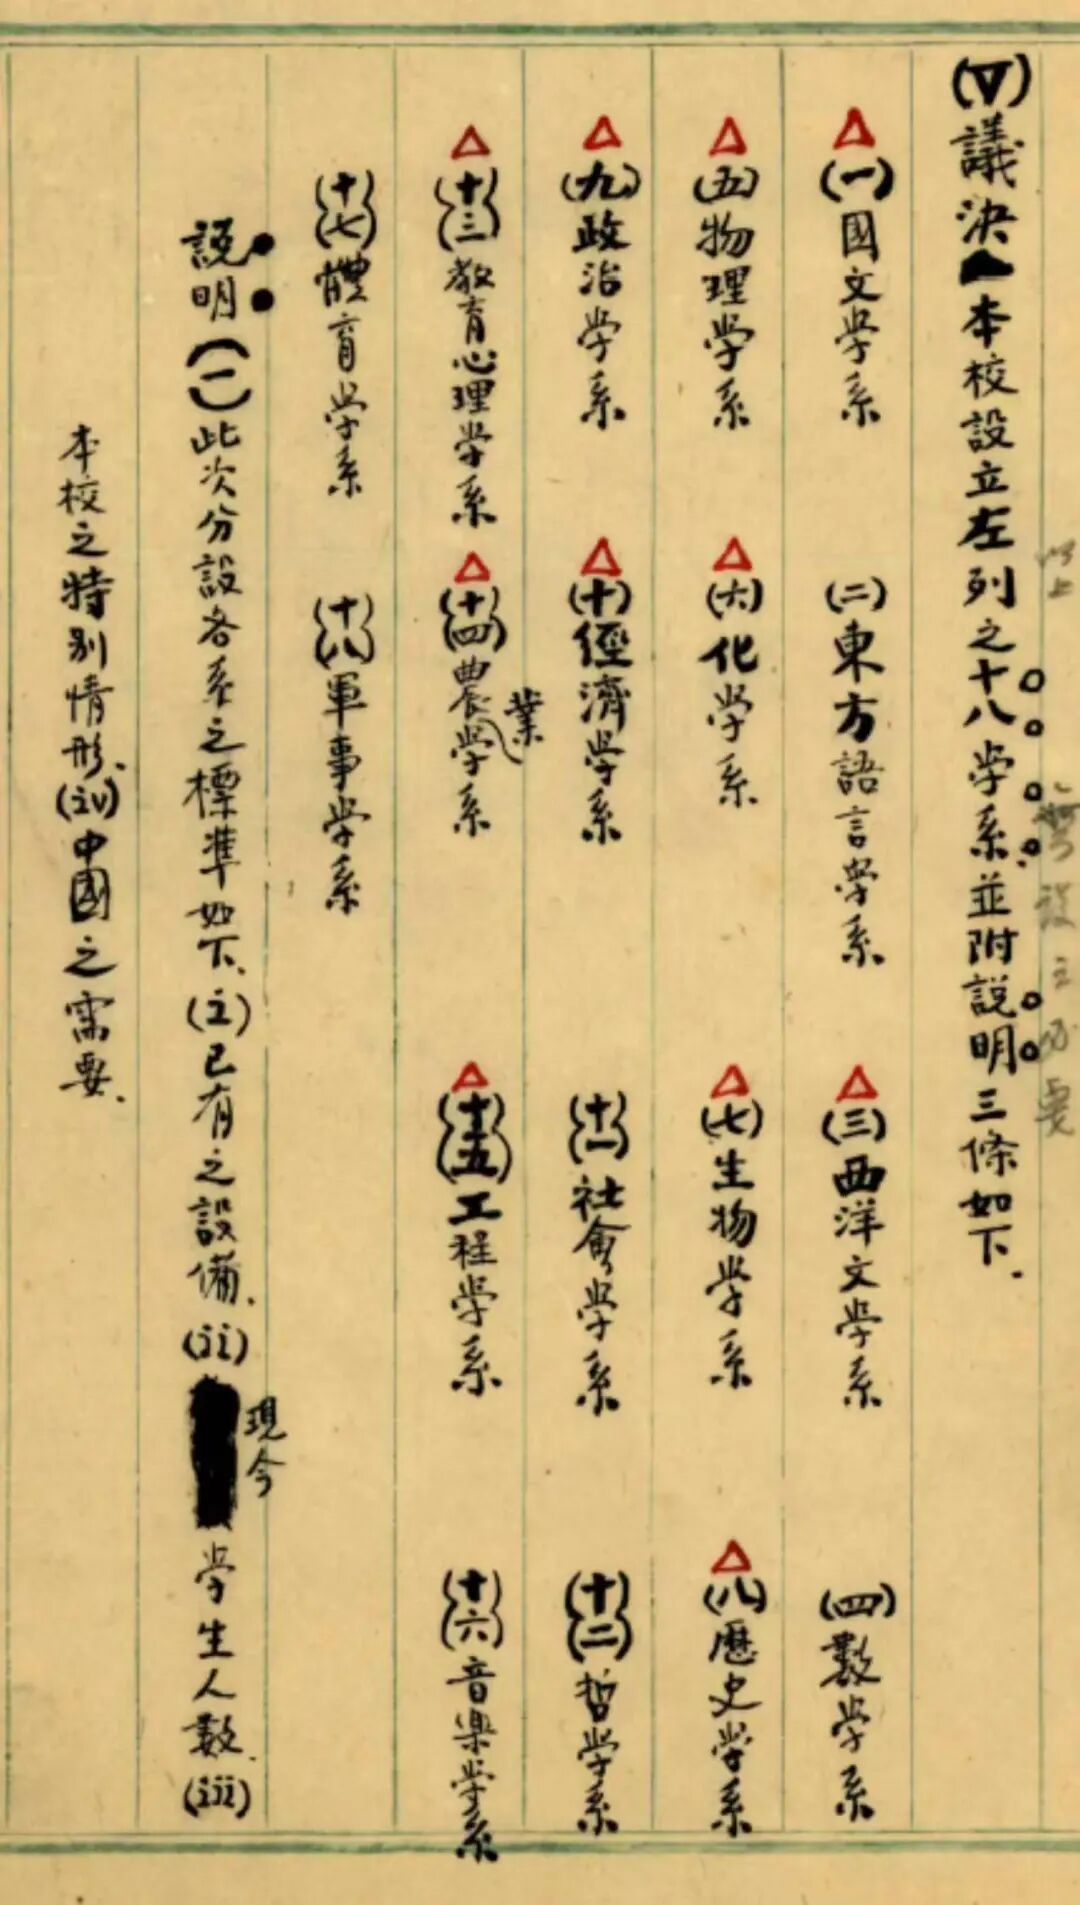 (V)議決 本校設立左列之十八學系.並附説明三條如下.
△(一)國文學系 (二)東方語言學系 △(三)西洋文學系 (四)數學系
△(五)物理學系 △(六)化學系 △(七)生物學系 △(八)歷史學系
△(九)政治學系 △(十)經濟學系 (十一)社會學系 (十二)哲學系
△(十三)教育心理學系 △(十四)農業學系 △(十五)工程學系 (十六)音樂學系
(十七)體育學系 (十八)軍事學系
説明(一)此次分設各系之標準如下.(i)已有之設備.(ii)現今學生人數.(iii)
本校之特別情形.(iv)中國之需要.